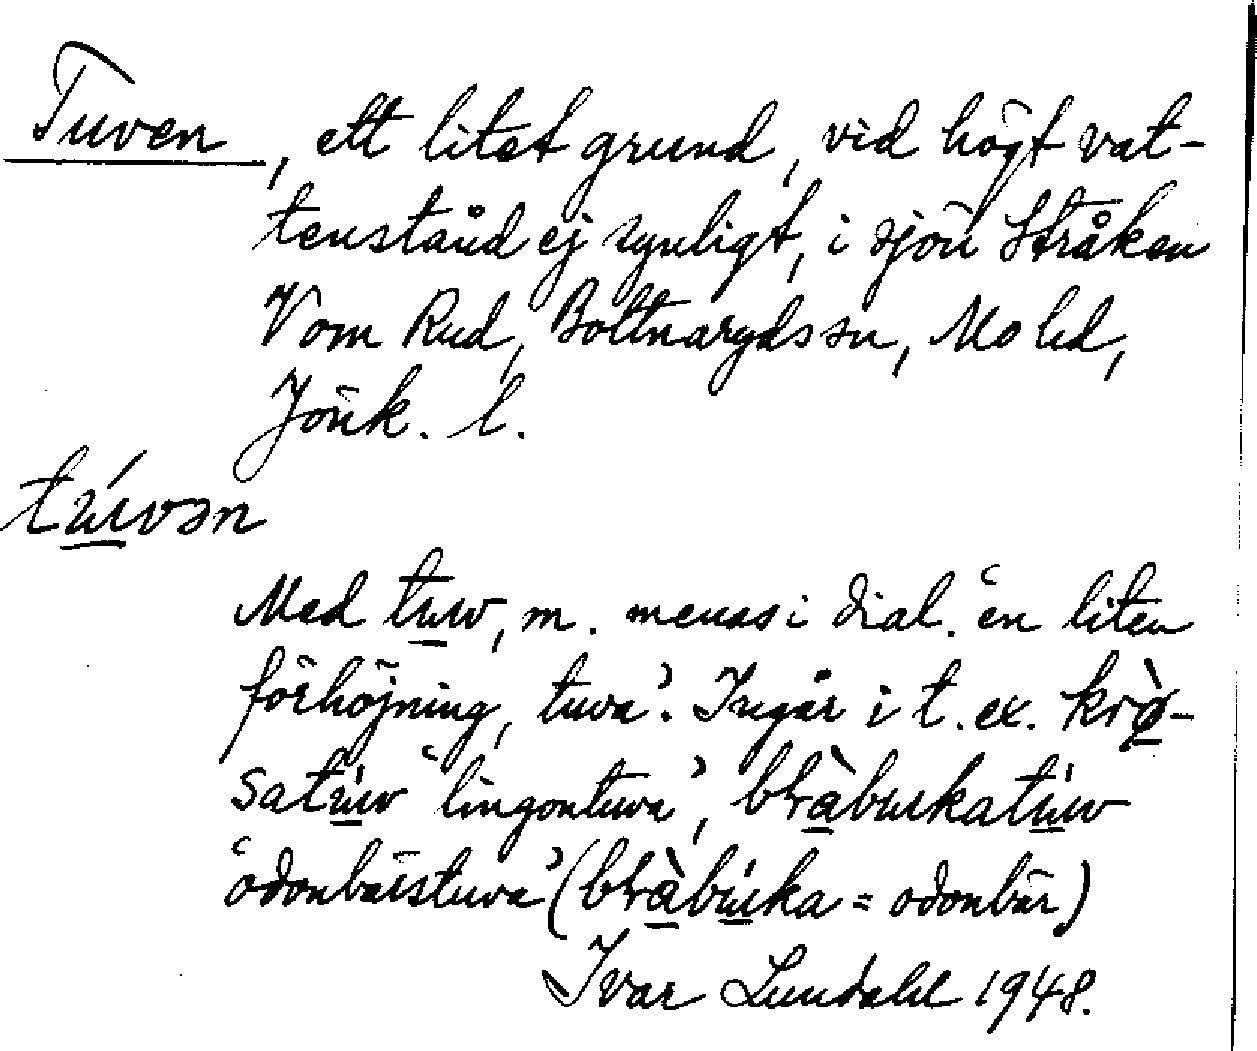 Tuven, ett litet grund, vid högt vat-
tenstånd ej synligt, i sjön Stråken
V om Rud, Boltnarydssn, Mo hd,
Jönk. l.
túvən
Med tuv, m. menas i dial. 'en liten
förhöjning, tuva'. Ingår i t. ex. krø̀-
satúv 'lingontuva', blàbukatúv
'odonbärstuva' (blàbúka = odonbär)
Ivar Lundahl 1948.